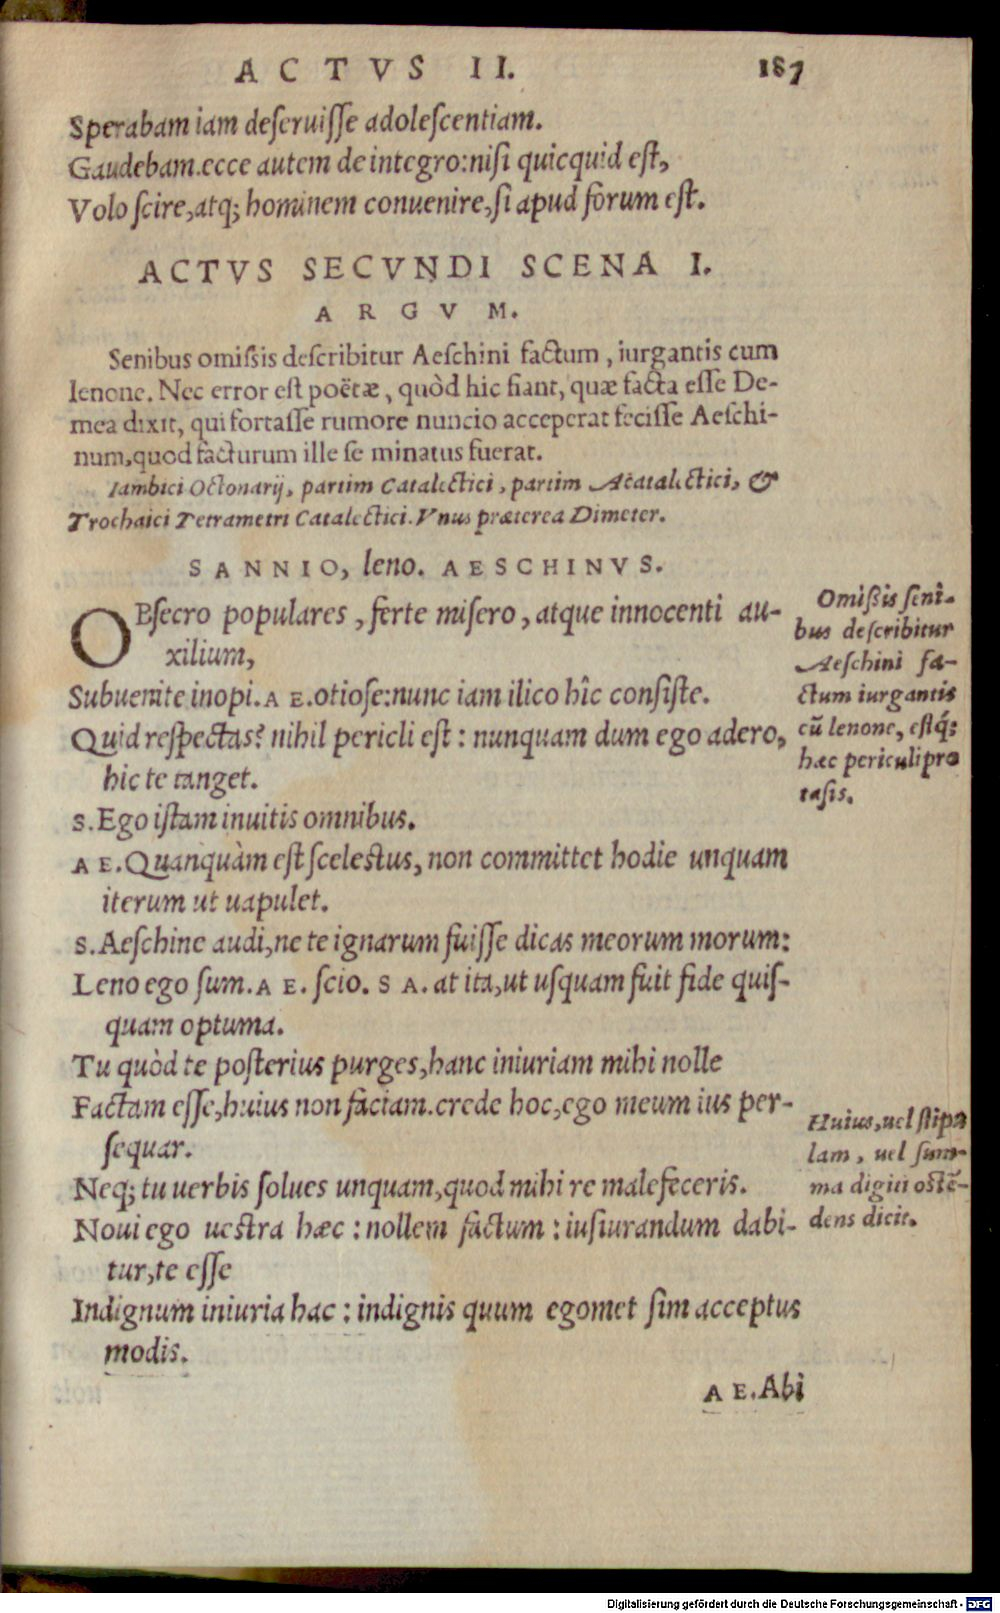 ACTVS II. 187
Sperabam iam deferuiſſe adoleſcentiam.
Gaudebam.ecce autem de integro:niſi quicquid eſt,
Volo ſcire,atq; hominem conuenire,ſi apud forum eſt.
ACTVS SECVNDI SCENA I.
ARGVM.
Senibus omiſsis deſcribitur Aeſchini factum, iurgantis cum
lenone. Nec error eſt poëtæ, quòd hic fiant, quæ facta eſſe De-
mea dixit, qui fortaſſe rumore nuncio acceperat feciſſe Aeſchi-
num,quod facturum ille ſe minatus fuerat.
Iambici Octonarij, partim Catalectici, partim Acatalectici, &
Trochaici Tetrametri Catalectici. Vnus præterea Dimeter.
SANNIO, leno. AESCHINVS.
OBſecro populares, ferte miſero, atque innocenti au-
xilium,
Subuenite inopi. AE. otioſe:nunc iam ilico hîc conſiſte.
Quid reſpectas? nihil pericli eſt: nunquam dum ego adero,
hic te tanget.
S. Ego iſtam inuitis omnibus.
AE. Quanquàm eſt ſceleſtus, non committet hodie unquam
iterum ut uapulet.
S. Aeſchine audi,ne te ignarum fuiſſe dicas meorum morum:
Leno ego ſum. AE. ſcio. SA. at ita,ut uſquam fuit fide quiſ-
quam optuma.
Tu quòd te poſterius purges,hanc iniuriam mihi nolle
Factam eſſe,huius non faciam.crede hoc,ego meum ius per-
ſequar.
Neq; tu uerbis ſolues unquam,quod mihi re malefeceris.
Noui ego ueſtra hæc: nollem factum: iuſiurandum dabi-
tur,te eſſe
Indignum iniuria hac: indignis quum egomet ſim acceptus
modis.
AE. Abi
Omiſsis ſeni-
bus deſcribitur
Aeſchini fa-
ctum iurgantis
cū lenone, eſtq́;
hæc periculi pro
taſis.
Huius,uel ſtipu
lam, uel ſum-
ma digiti oſtē-
dens dicit.
Digitalisierung gefördert durch die Deutsche Forschungsgemeinschaft - DFG